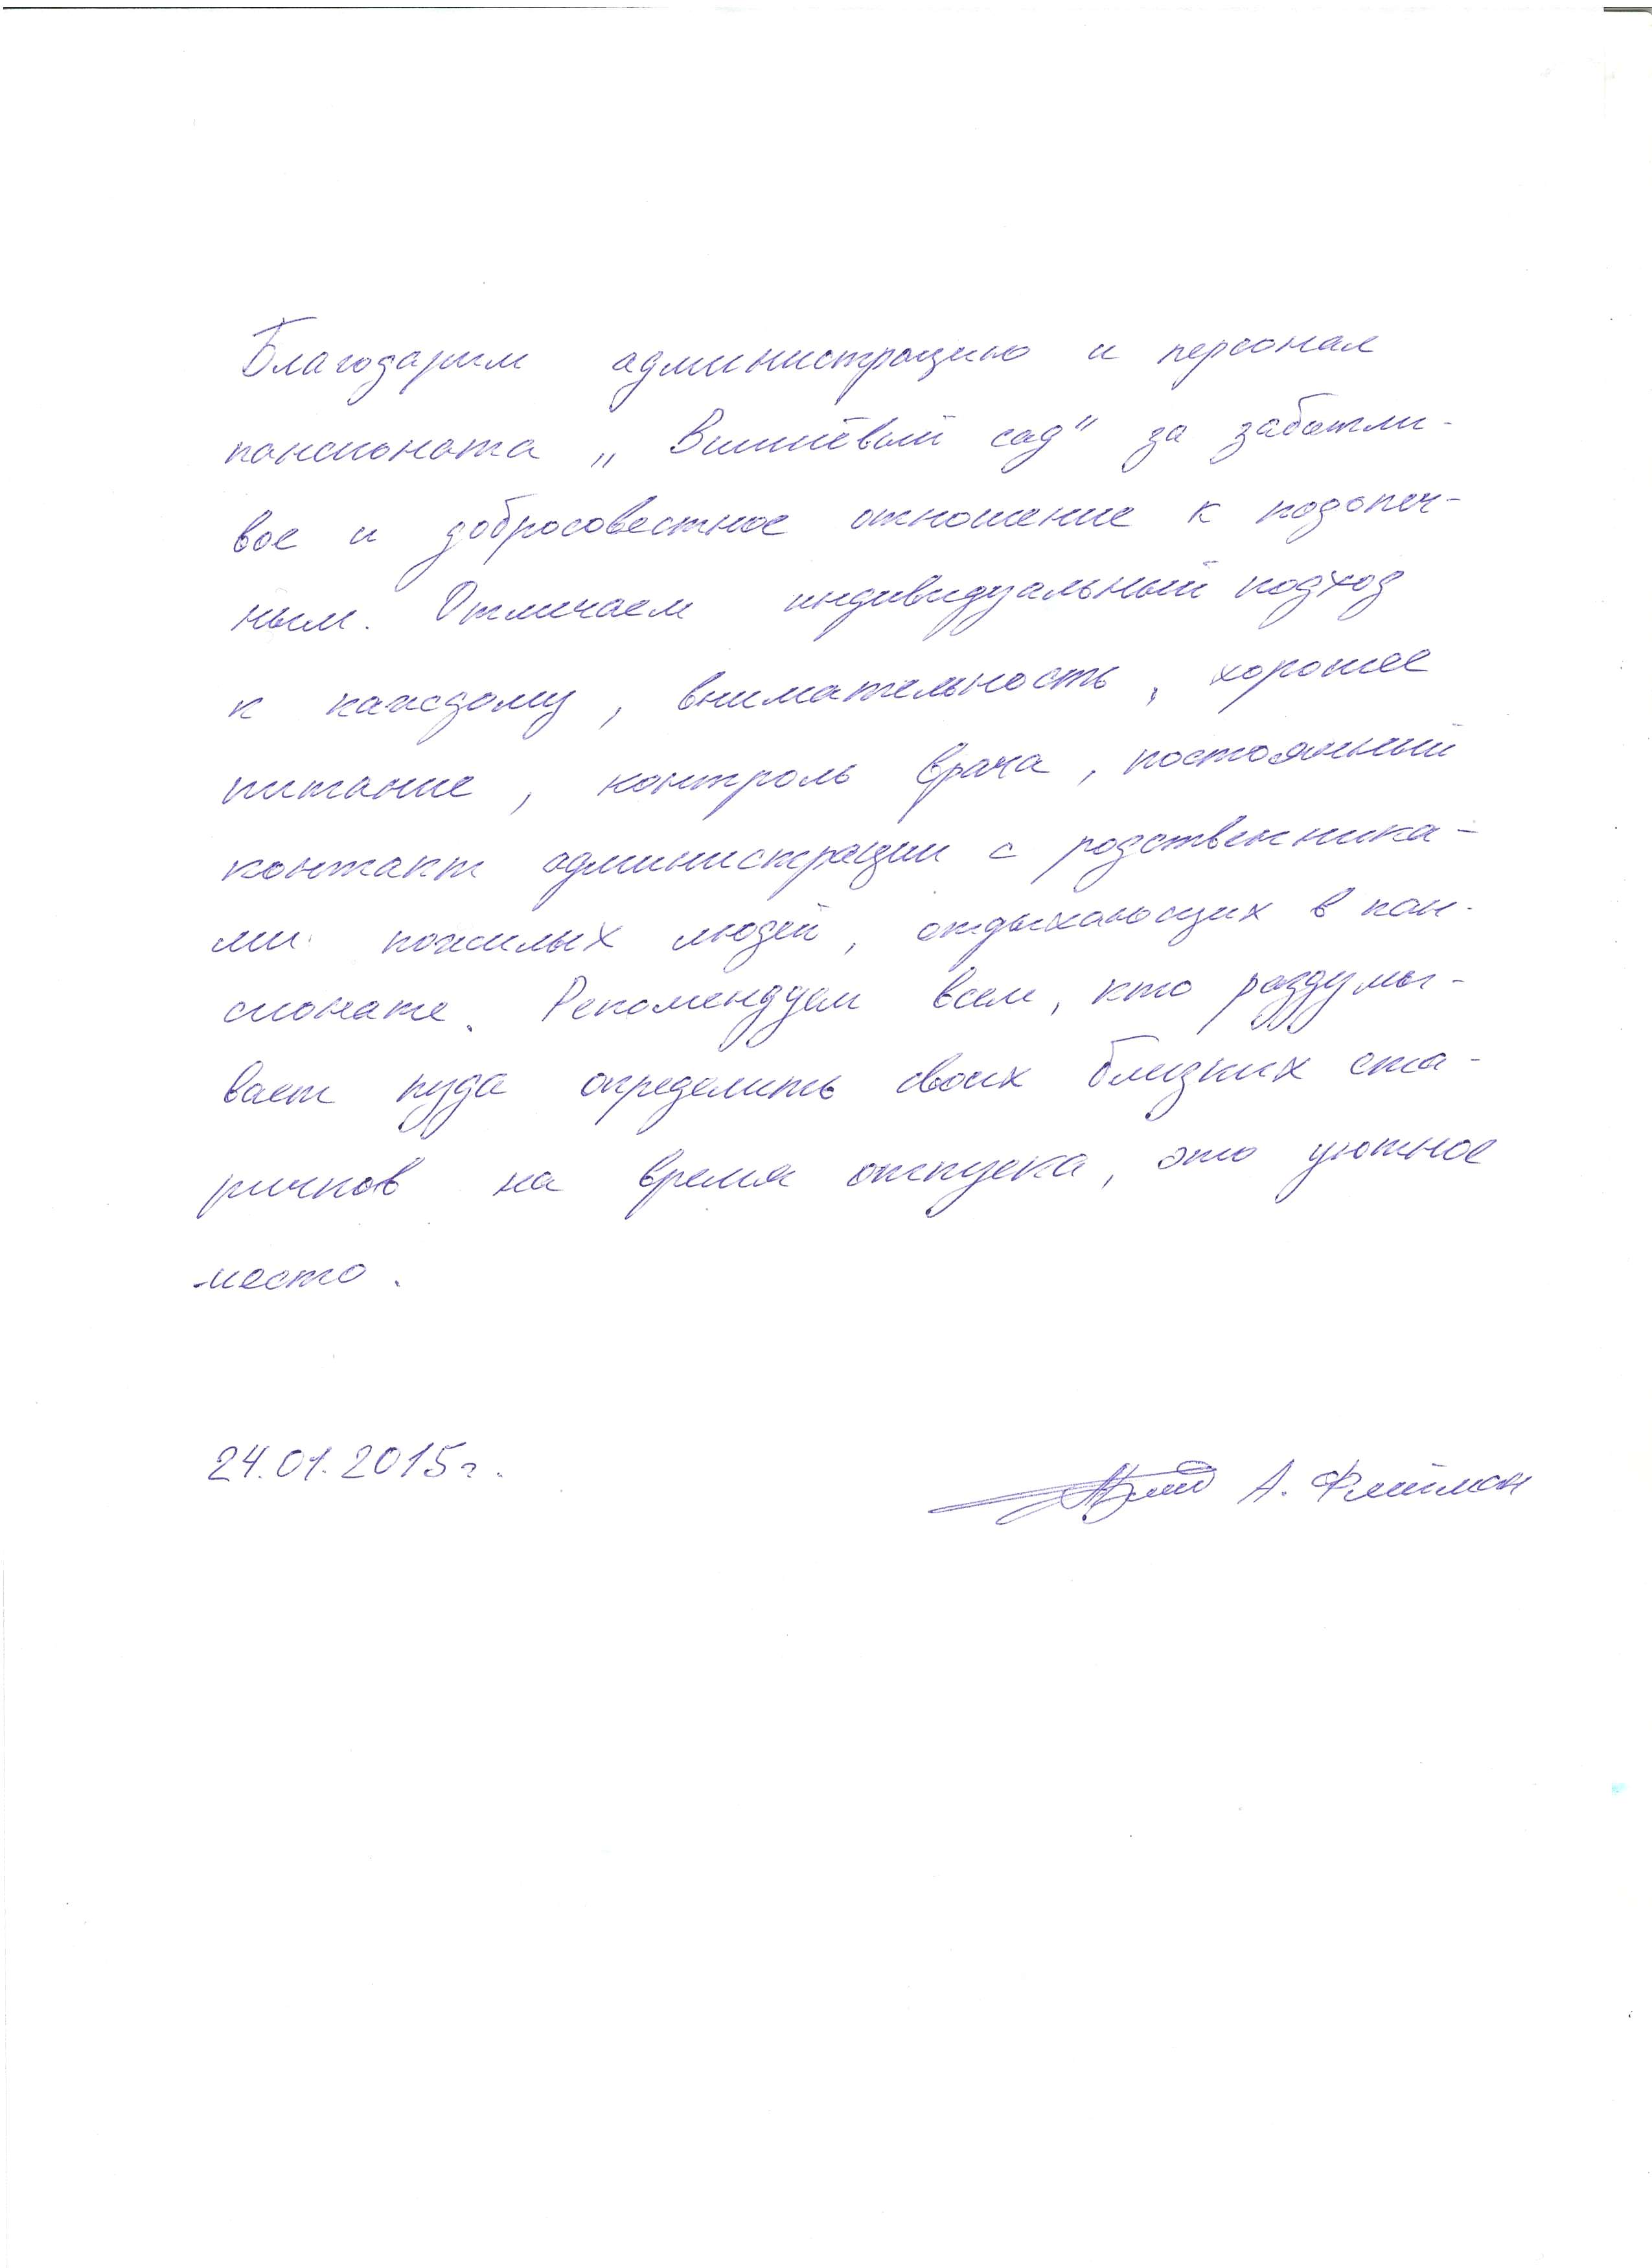 Благодарим администрацию и персонал
пансионата „Вишнёвый сад" за заботли-
вое и добросовестное отношение к подопеч-
ным. Отмечаем индивидуальный подход
к каждому, внимательность, хорошее
питание, контроль врача, постоянный
контакт администрации с родственника-
ми пожилых людей, отдыхающих в пан-
сионате. Рекомендуем всем, кто раздумы-
вает куда определить своих близких ста-
ричков на время отпуска, это уютное
место.
24.01.2015г.
А.